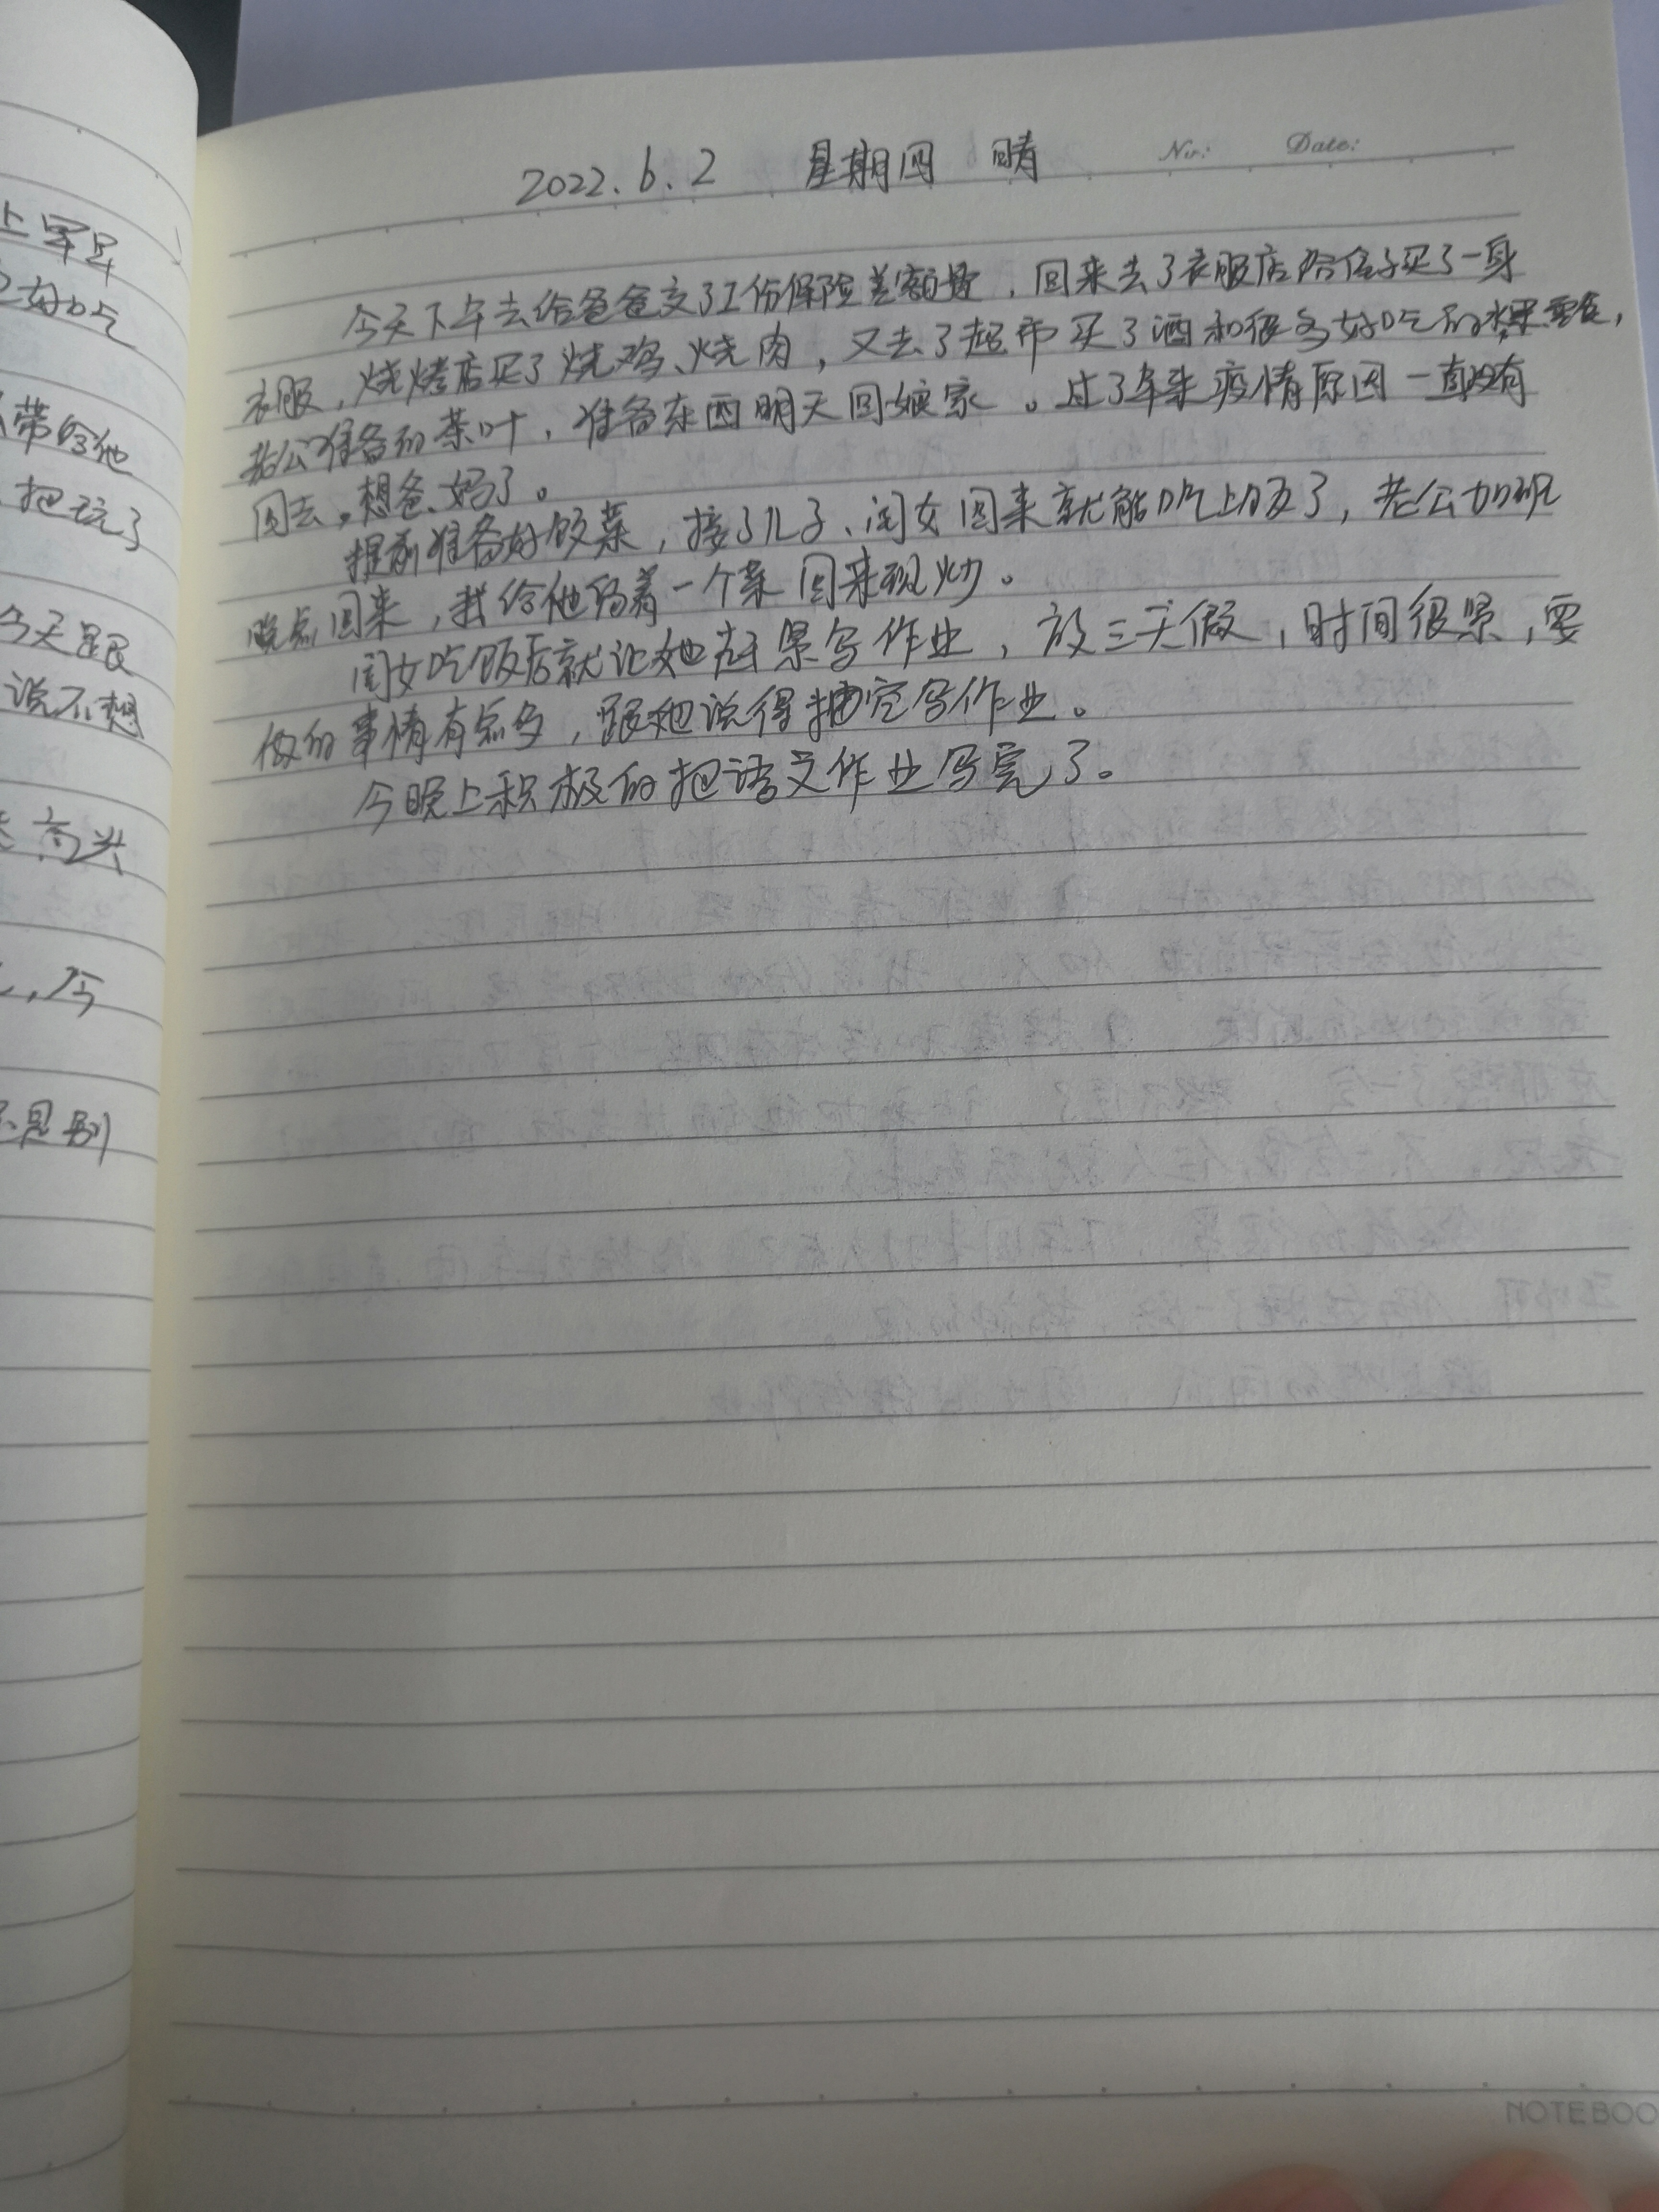 上早早
又好吃
带给他
把玩了
今天跟
说不想
高兴
,今
是别
Nr: Date:
2022.6.2 星期四 晴
今天下午去给爸爸交了工份保险差额费,回来去了衣服店给侄子买了一身
衣服,烧烤店买了烧鸡、烧肉,又去了超市买了酒和很多好吃的水果零食,
老公准备的茶叶,准备东西明天回娘家。过了年来疫情原因一直没有
回去,想爸、妈了。
提前准备好饭菜,接了儿子、闺女回来就能吃上饭了,老公加班
晚点回来,我给他留着一个菜回来现炒。
闺女吃饭后就让她赶紧写作业,放三天假,时间很紧,要
做的事情有点多,跟她说得抽空写作业。
今晚上积极的把语文作业写完了。
NOTEBOO